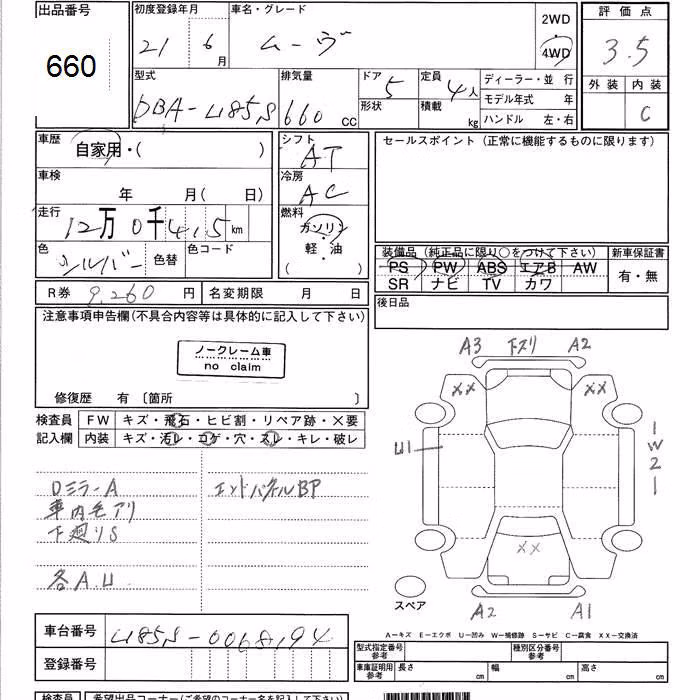 出品番号
660
初度登録年月
21 6月
車名・グレード
ムーヴ
2WD
4WD
評価点
3.5
外装 内装
C
型式
DBA-L185S
排気量
660 cc
ドア 5
形状
定員 4人
積載 kg
ディーラー・並行
モデル年式 年
ハンドル 左・右
車歴
自家用・( )
車検
年 月( 日)
走行
12万0千415km
色
シルバー 色替
色コード
シフト
AT
冷房
AC
燃料
ガソリン
・
軽・油
( )
セールスポイント (正常に機能するものに限ります)
装備品 (純正品に限り○をつけて下さい)
PS PW ABS エアB AW
SR ナビ TV カワ
新車保証書
有・無
後日品
R券 9,260円
名変期限 月 日
注意事項申告欄(不具合内容等は具体的に記入して下さい)
ノークレーム車
no claim
修復歴 有 〔箇所 〕
検査員
記入欄
FW キズ・飛石・ヒビ割・リペア跡・×要
内装 キズ・汚レ・コゲ・穴・スレ・キレ・破レ
Dミラー A
車内毛アリ
下廻りS
各A.U
エンドパネルBP
A3 下スリ A2
×× ××
U1
1
W2
1
××
スペア
A2 A1
A-キズ E-エクボ U-凹み W-補修跡 S-サビ C-腐食 XX-交換済
車台番号 L185S-0068194
登録番号
型式指定番号
参考
種別区分番号
参考
車庫証明用
参考
長さ cm
幅 cm
高さ cm
検査員
希望出品コーナー(ご希望のコーナー名を記入下さい)